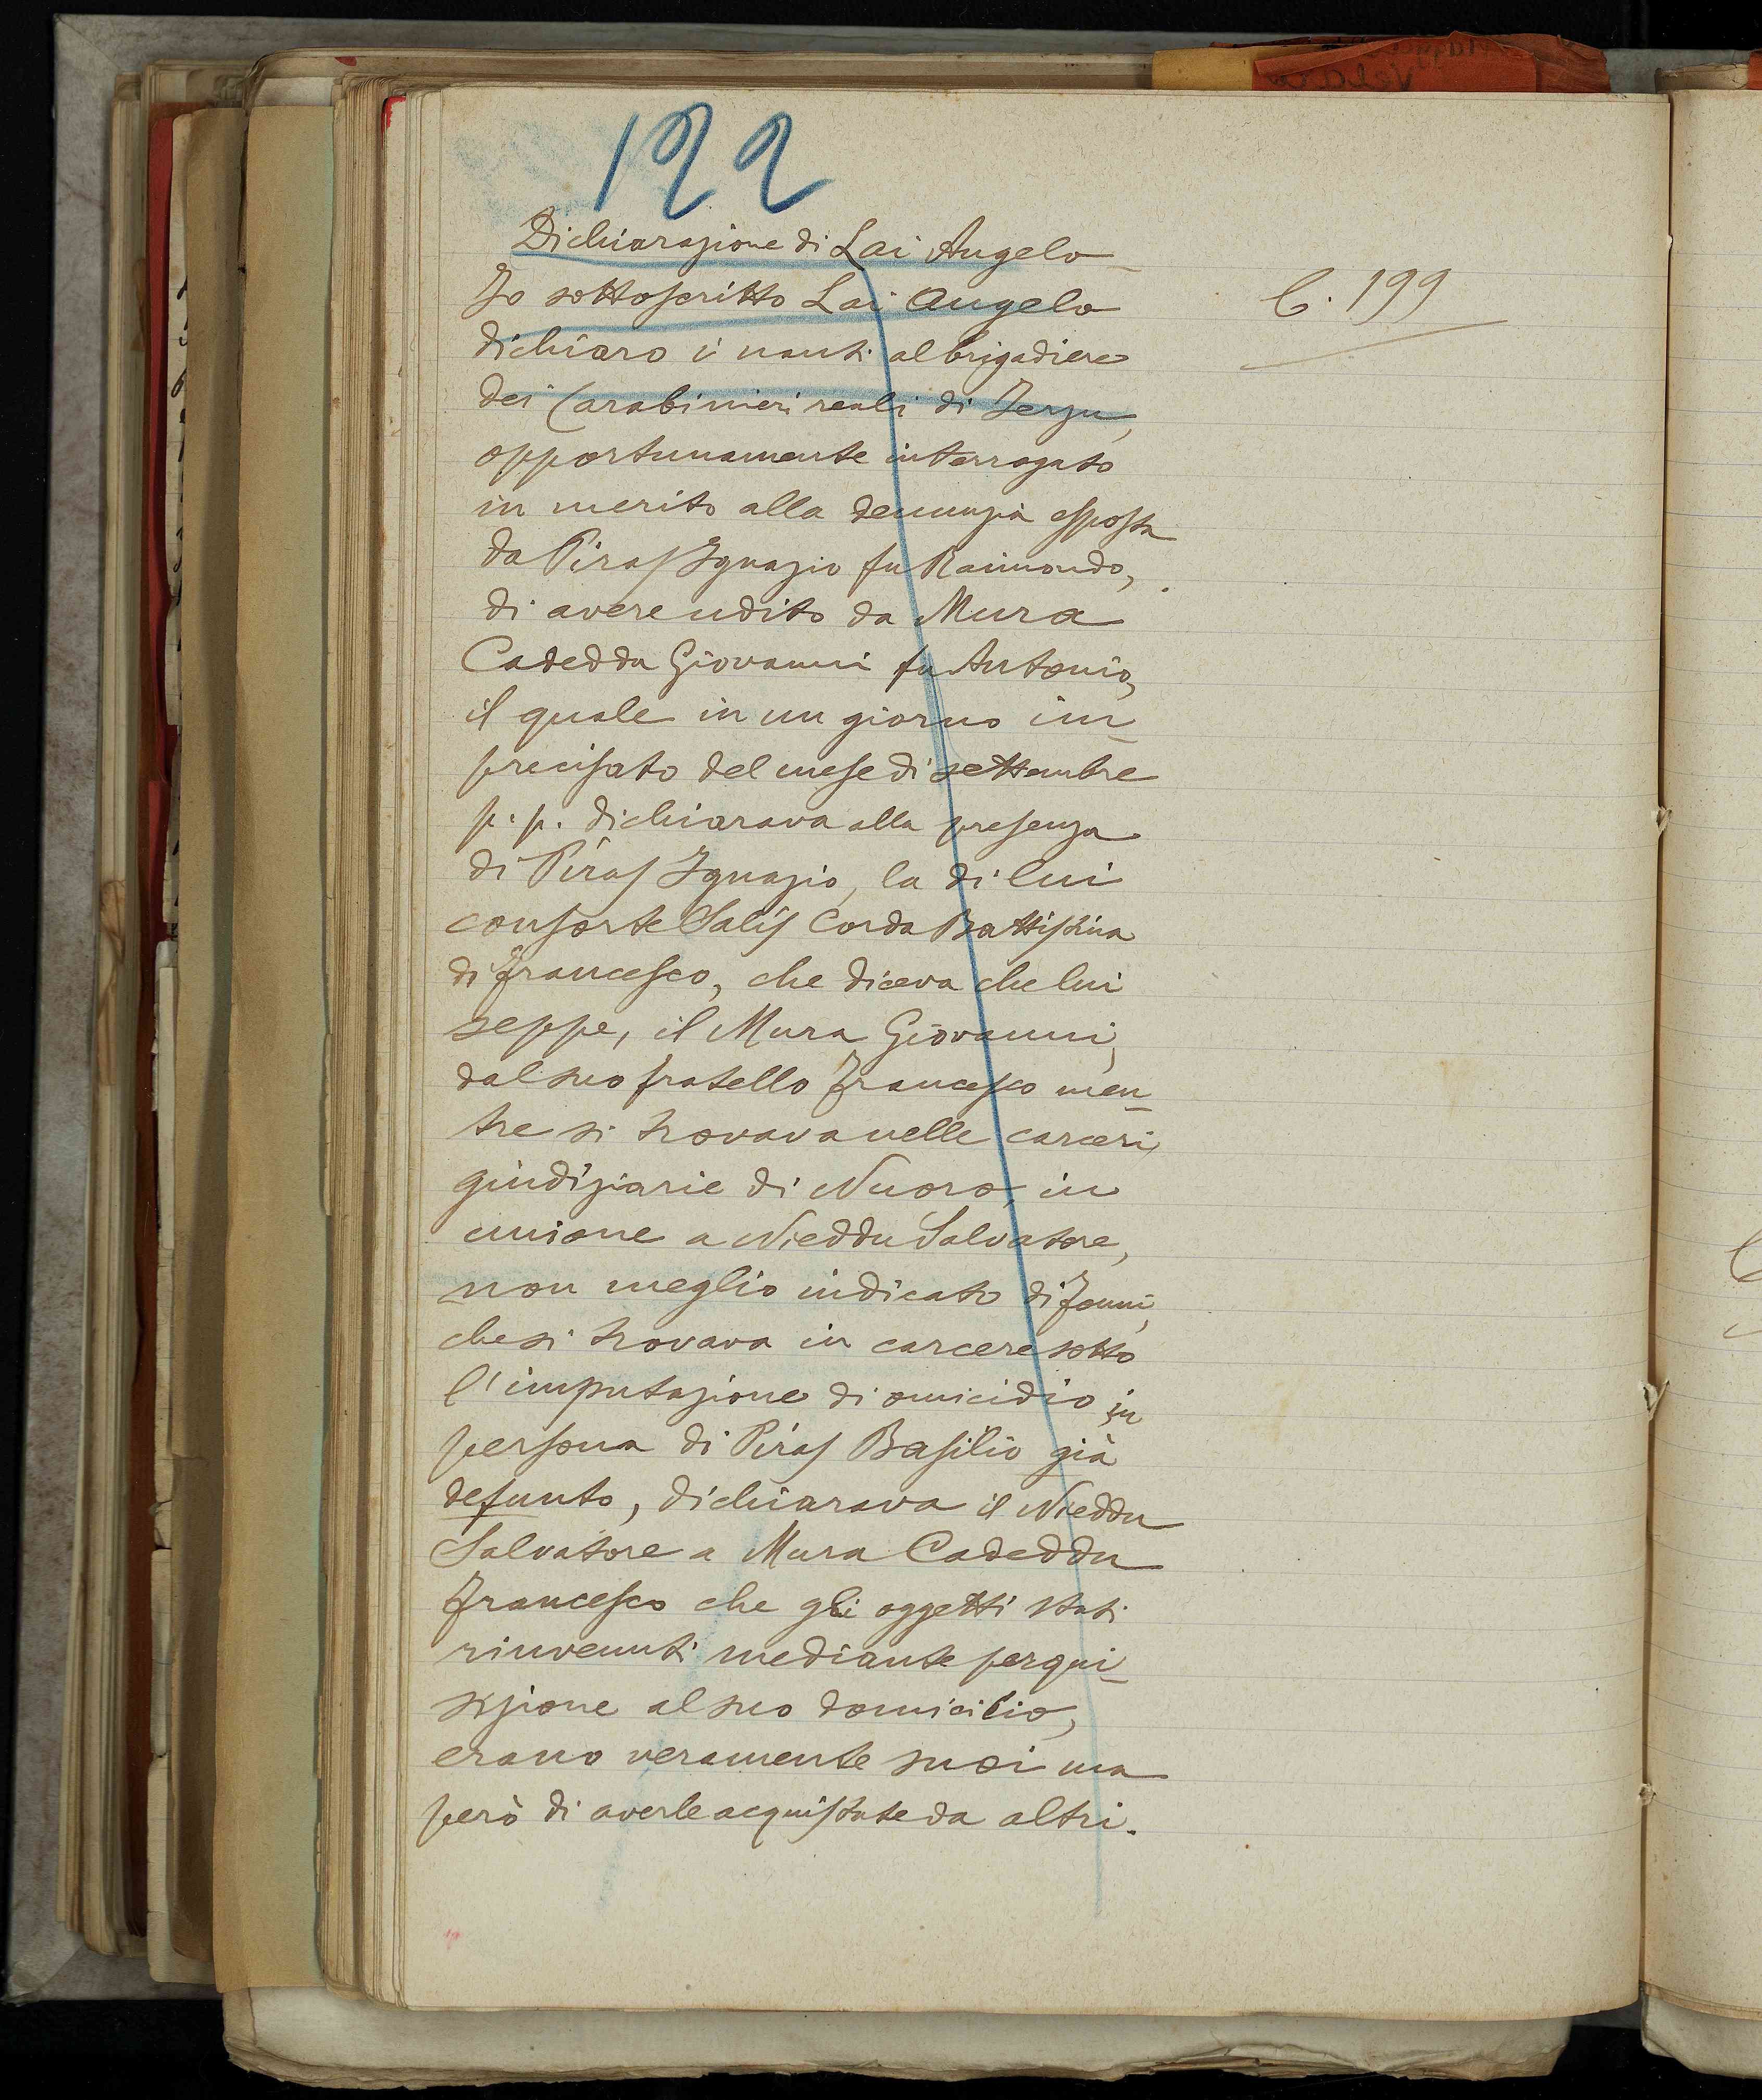 122
Dichiarazione di Lai Angelo
C. 199
Io sottoscritto Lai Angelo
dichiaro i nanti al brigadiere
dei Carabinieri reali di Jerzu,
opportunamente interrogato
in merito alla denunzia esposta
da Piras Ignazio fu Raimondo,
di avere udito da Mura
Cadeddu Giovanni fu Antonio,
il quale in un giorno im-
precisato del mese di settembre
p. p. dichiarava alla presenza
di Piras Ignazio, la di lui
consorte Salis Corda Battistina
di Francesco, che diceva che lui
seppe, il Mura Giovanni,
dal suo fratello Francesco men-
tre si trovava nelle carceri
giudiziarie di Nuoro, in
unione a Nieddu Salvatore,
non meglio indicato di Jonni,
che si trovava in carcere sotto
l'imputazione di omicidio in
persona di Piras Basilio già
defunto, dichiarava il Nieddu
Salvatore a Mura Cadeddu
Francesco che gli oggetti stati
rinvenuti mediante perqui-
sizione al suo domicilio,
erano veramente suoi ma
però di averle acquistate da altri.